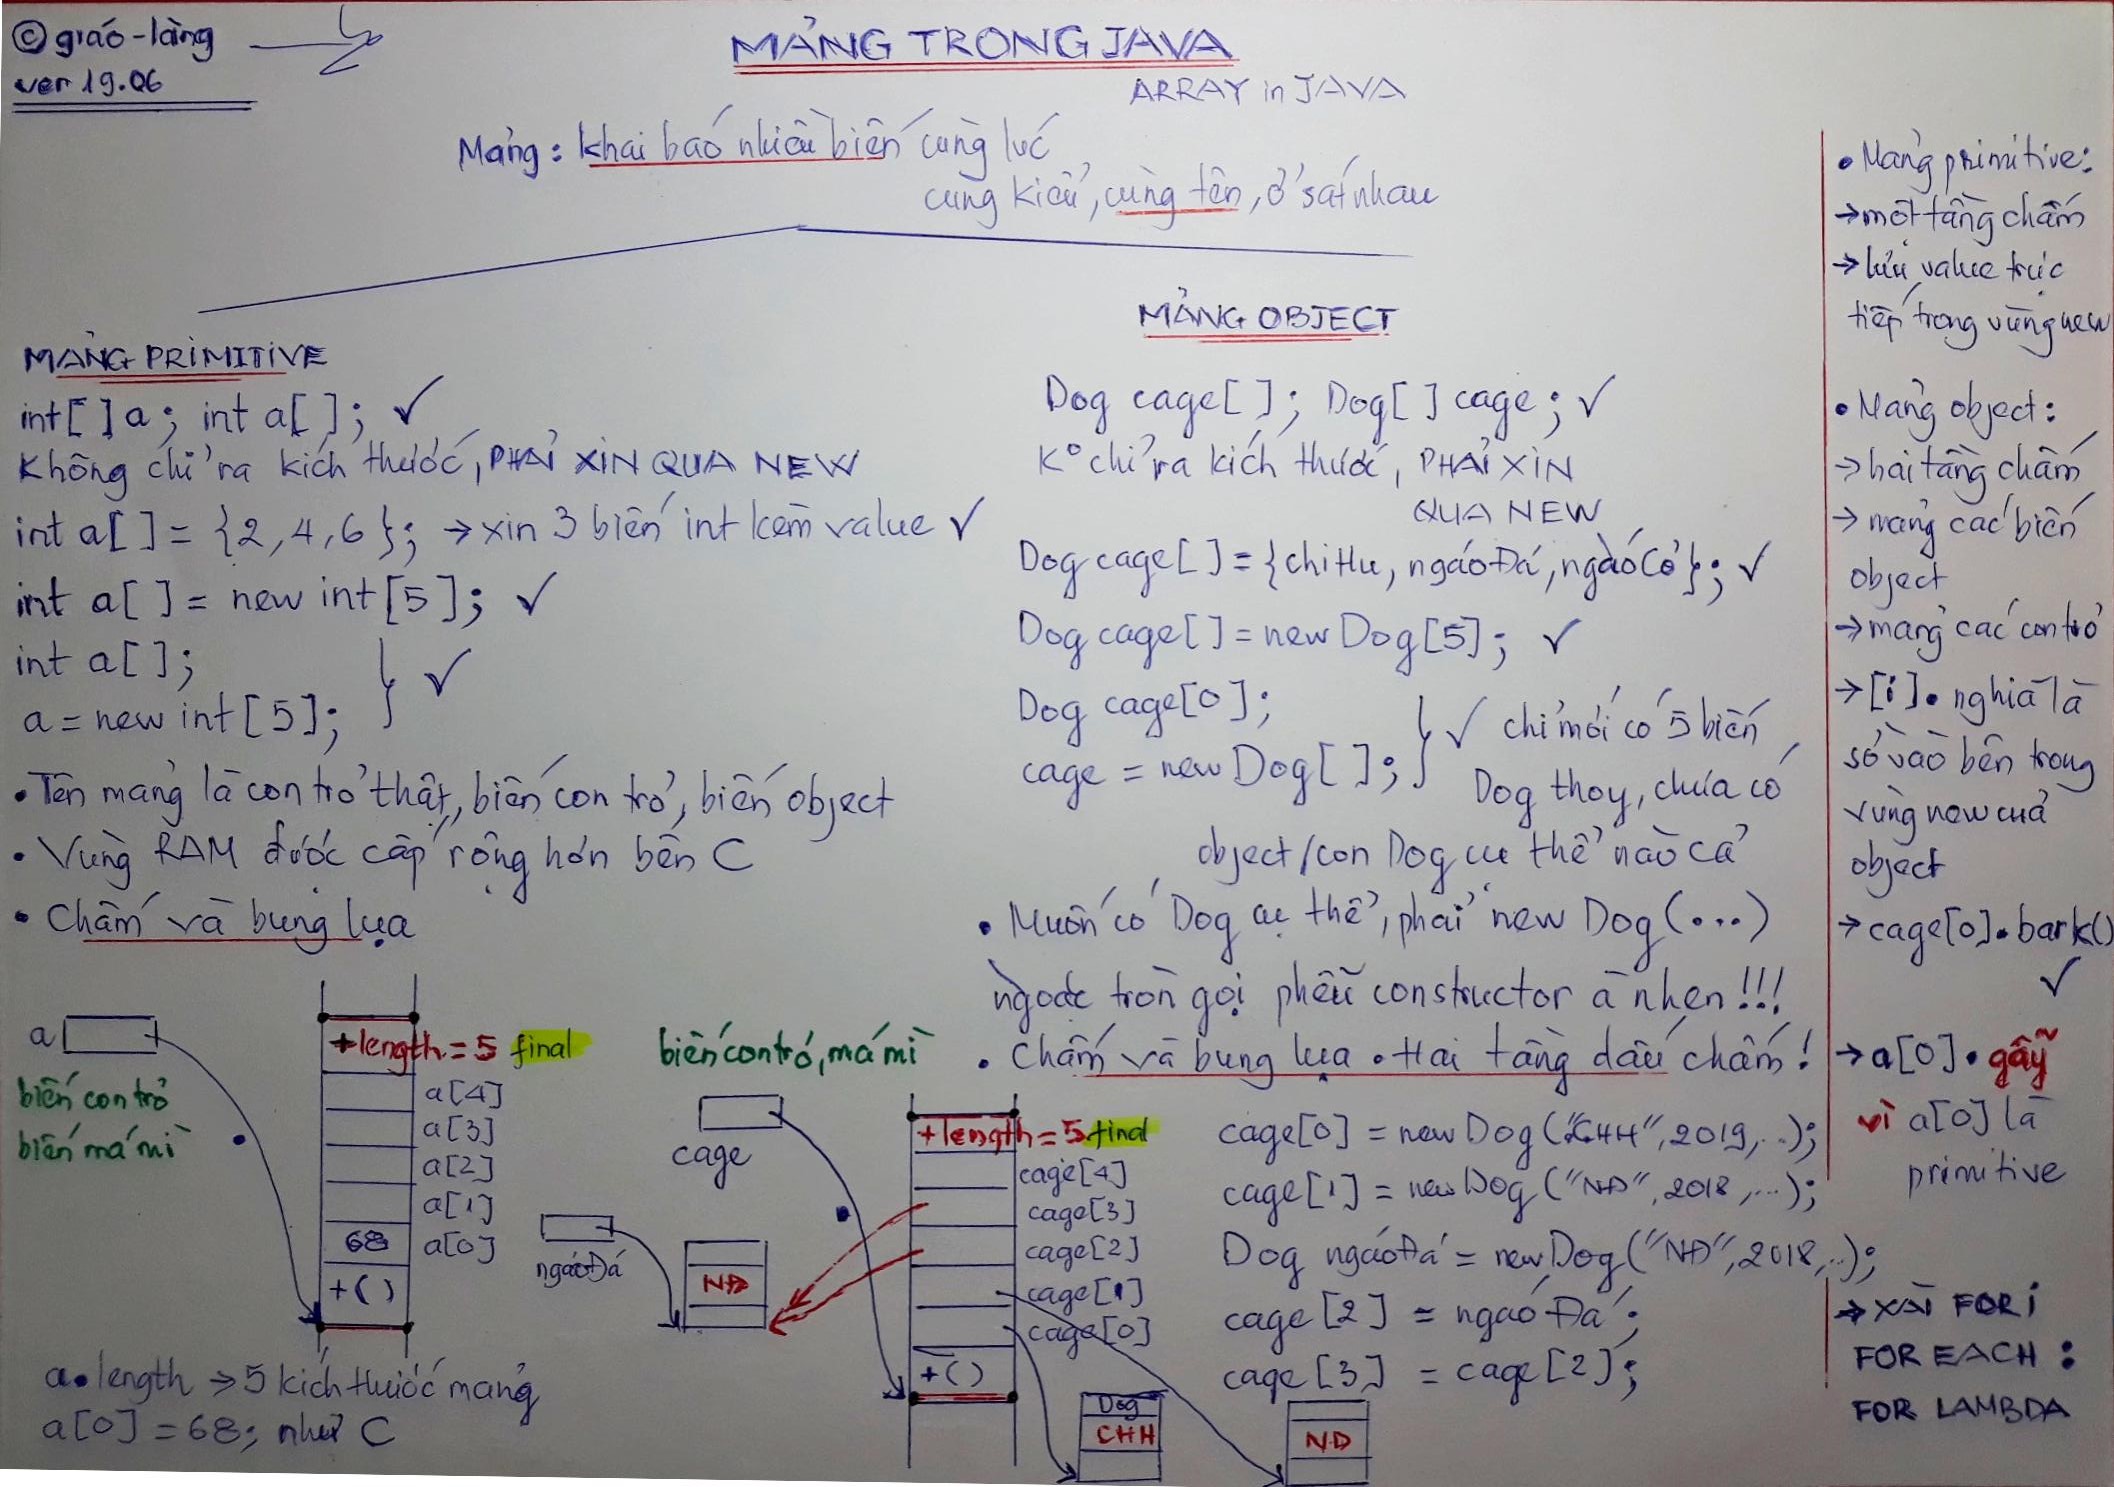 © giáo-làng
ver 19.06
MẢNG TRONG JAVA
ARRAY in JAVA
Mảng: khai báo nhiều biến cùng lúc
cùng kiểu, cùng tên, ở sát nhau
MẢNG PRIMITIVE
int[] a; int a[]; ✓
Không chỉ ra kích thước, PHẢI XIN QUA NEW
int a[] = {2, 4, 6}; → xin 3 biến int kèm value ✓
int a[] = new int[5]; ✓
int a[];
a = new int[5]; } ✓
• Tên mảng là con trỏ thật, biến con trỏ, biến object
• Vùng RAM được cấp rộng hơn bên C
• Chấm và bung lụa
a
biến con trỏ
biến má mì
+length = 5 final
a[4]
a[3]
a[2]
a[1]
68 a[0]
+()
a.length → 5 kích thước mảng
a[0] = 68; như C
MẢNG OBJECT
Dog cage[]; Dog[] cage; ✓
K° chỉ ra kích thước, PHẢI XIN
QUA NEW
Dog cage[] = {chiHu, ngáoĐá, ngáoCỏ}; ✓
Dog cage[] = new Dog[5]; ✓
Dog cage[0];
cage = new Dog[]; } ✓ chỉ mới có 5 biến
Dog thoy, chưa có
object/con Dog cụ thể nào cả
• Muốn có Dog cụ thể, phải new Dog(...)
ngoặc tròn gọi phễu constructor à nhen!!!
• Chấm và bung lụa. Hai tầng dấu chấm!
biến con trỏ, má mì
cage
ngáoĐá
NĐ
+length = 5 final
cage[4]
cage[3]
cage[2]
cage[1]
cage[0]
+()
Dog
CHH
NĐ
cage[0] = new Dog("CHH", 2019, ...);
cage[1] = new Dog("NĐ", 2018, ...);
Dog ngáoĐá = new Dog("NĐ", 2018, ..);
cage[2] = ngáoĐá;
cage[3] = cage[2];
• Mảng primitive:
→ một tầng chấm
→ lưu value trực
tiếp trong vùng new
• Mảng object:
→ hai tầng chấm
→ mảng các biến
object
→ mảng các con trỏ
→ [i]. nghĩa là
sờ vào bên trong
vùng new của
object
→ cage[0].bark()
✓
→ a[0]. gãy
vì a[0] là
primitive
→ XÀI FOR i
FOR EACH :
FOR LAMBDA